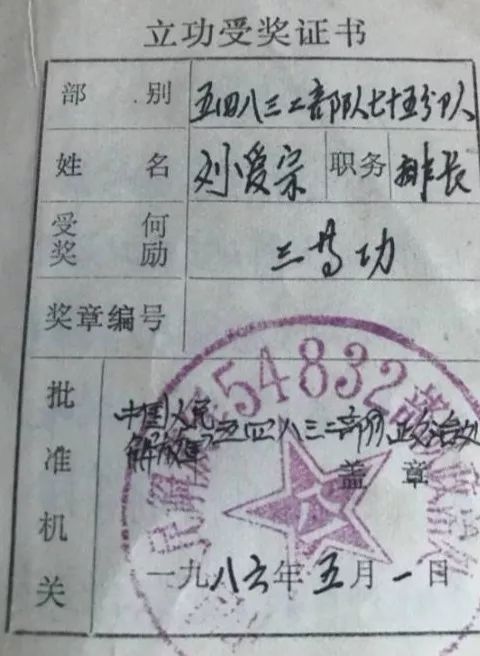 立功受奖证书
部别 五四八三二部队七十五分队
姓名 刘爱宗 职务 排长
受何奖励 三等功
奖章编号
批准机关 中国人民解放军五四八三二部队政治处
盖章
54832部队政治处
一九八六年五月一日